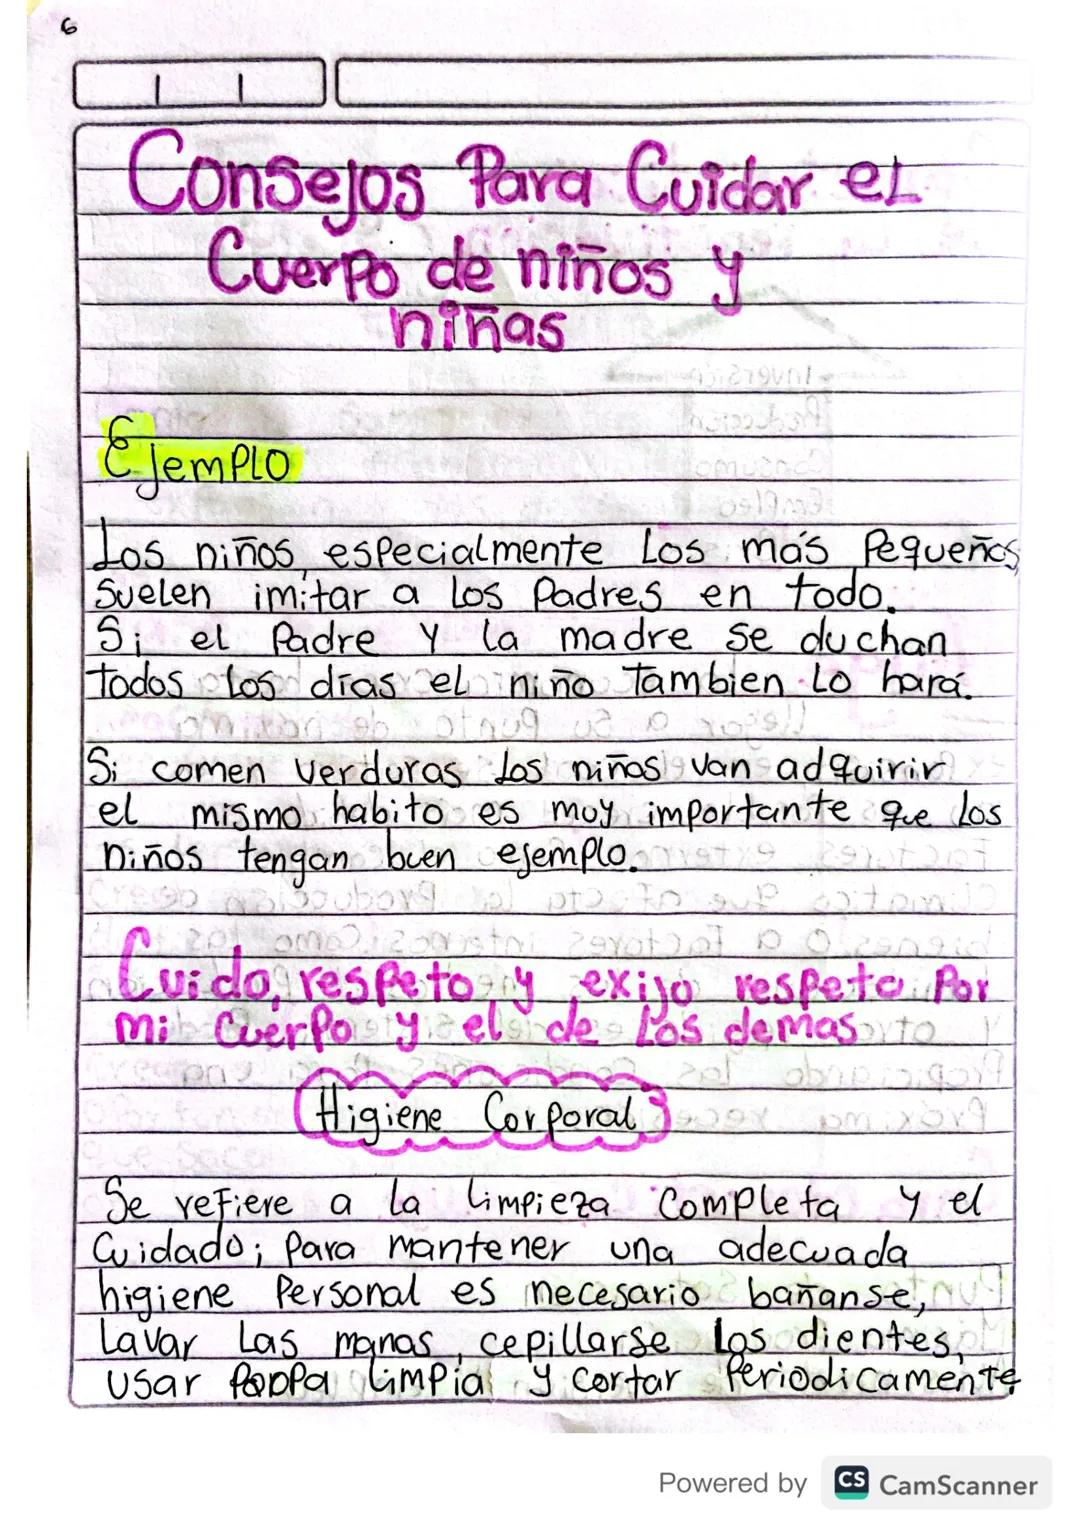 6
Consejos Para Cuidar el
Cuerpo de niños y
niñas
Ejemplo
Los niños, especialmente Los más Pequeños
Suelen imitar a Los Padres en todo.
Si el Padre y la madre se duchan
todos Los días el niño Tambien Lo hará.
Si comen verduras Los niños van adquirir
el mismo habito es muy importante que Los
niños tengan buen ejemplo.
Cuido, respeto y exijo respeto Por
mi Cuerpo y el de Los demas
Higiene Corporal
Se refiere a la Limpieza Completa y el
Cuidado; Para mantener una adecuada
higiene Personal es necesario bañanse,
Lavar Las manos, cepillarse Los dientes,
Usar Limpia y cortar Periodicamente
Powered by CS CamScanner